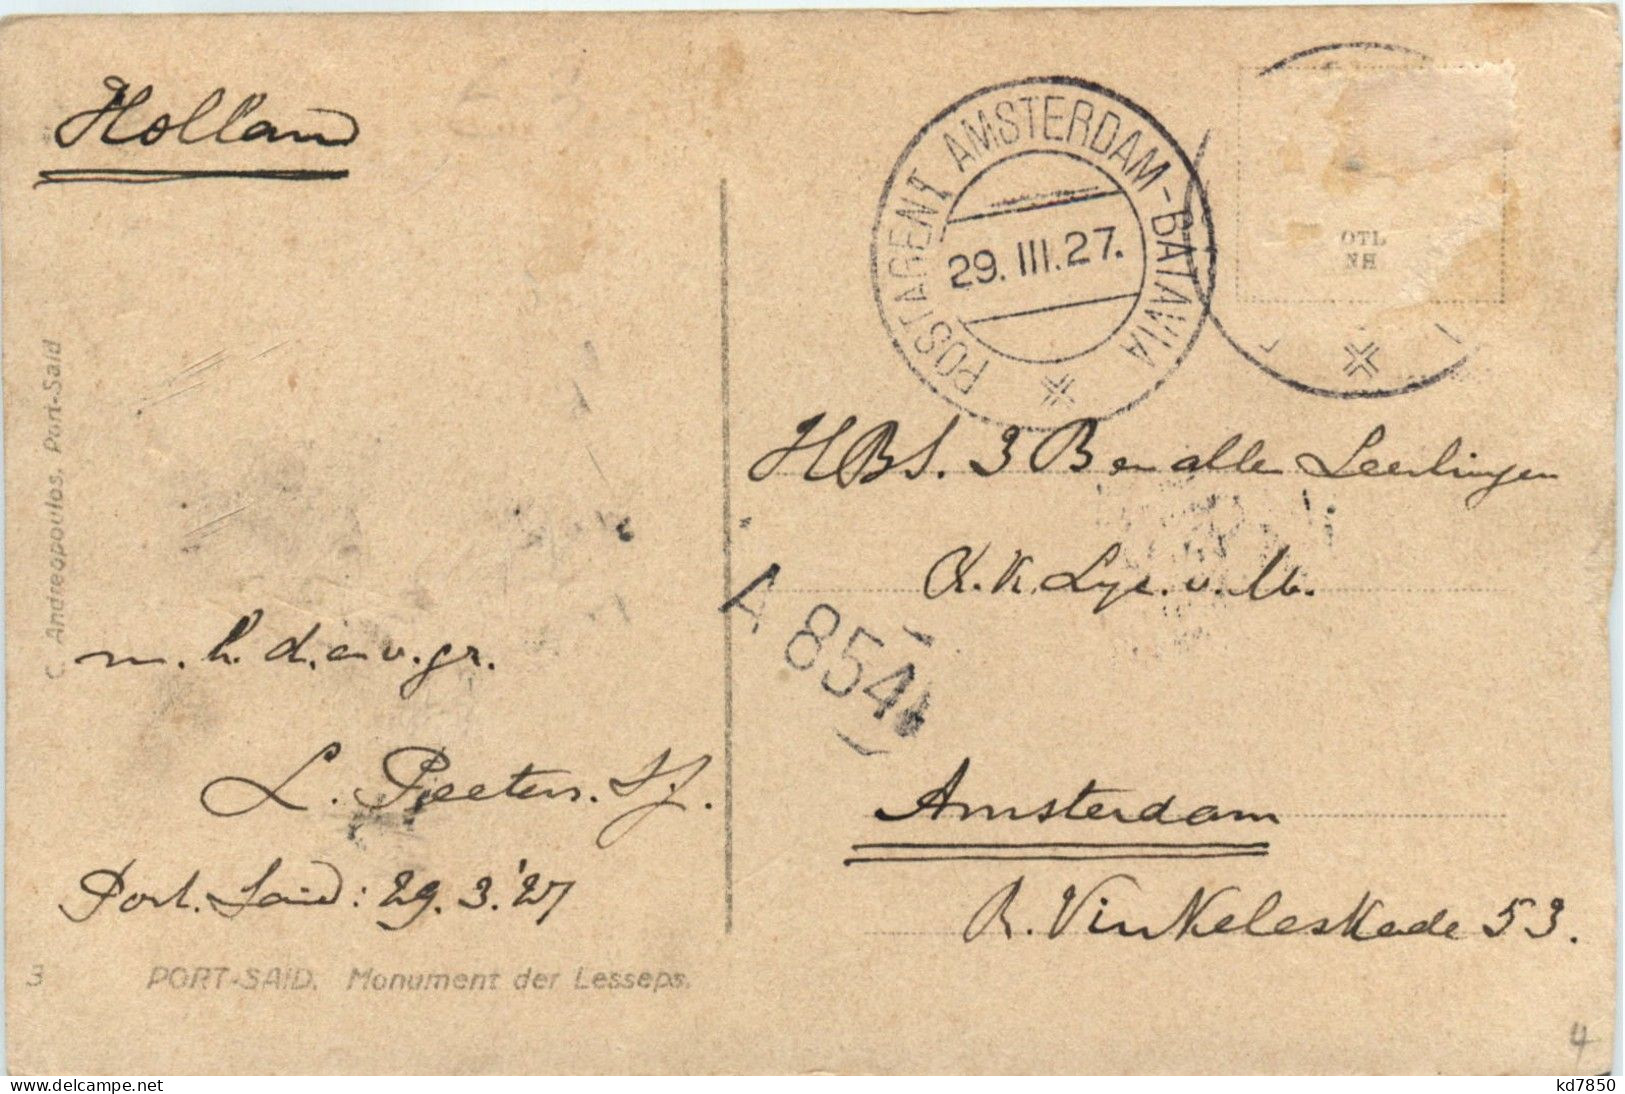 Holland
POSTAGENT AMSTERDAM-BATAVIA
29.III.27.
OTL
NH
HBS. 3 B en alle Leerlingen
R.K. Lyc. v. M.
A 854
m. h. d. en v. gr.
L. Peeters. S.J.
Amsterdam
Port. Said: 29.3.'27
R. Vinkeleskade 53.
C. Andreopoulos, Port-Said
3
PORT-SAID. Monument der Lesseps.
4
delcampe.net
kd7850